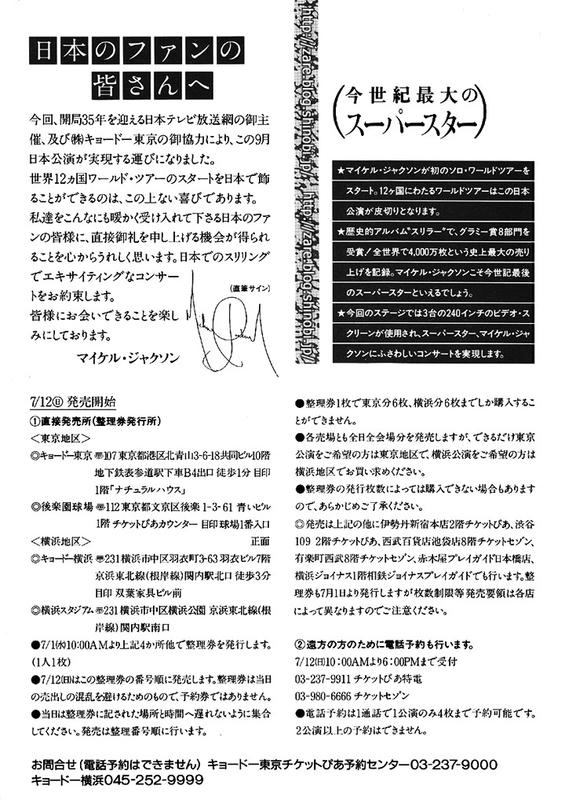 日本のファンの
皆さんへ
今回、開局35年を迎える日本テレビ放送網の御主
催、及び㈱キョードー東京の御協力により、この9月
日本公演が実現する運びになりました。
世界12ヵ国ワールド・ツアーのスタートを日本で飾
ることができるのは、この上ない喜びであります。
私達をこんなにも暖かく受け入れて下さる日本のファ
ンの皆様に、直接御礼を申し上げる機会が得られ
ることを心からうれしく思います。日本でのスリリング
でエキサイティングなコンサー
トをお約束します。
皆様にお会いできることを楽し
みにしております。
マイケル・ジャクソン
(直筆サイン)
http://zare.blog.shinobi.jp/
http://zare.blog.shinobi.jp/
今世紀最大の
スーパースター
★マイケル・ジャクソンが初のソロ・ワールドツアーを
スタート。12ヶ国にわたるワールドツアーはこの日本
公演が皮切りとなります。
★歴史的アルバム"スリラー"で、グラミー賞8部門を
受賞!全世界で4,000万枚という史上最大の売り
上げを記録。マイケル・ジャクソンこそ今世紀最後
のスーパースターといえるでしょう。
★今回のステージでは3台の240インチのビデオ・ス
クリーンが使用され、スーパースター、マイケル・ジャ
クソンにふさわしいコンサートを実現します。
7/12㊐ 発売開始
①直接発売所(整理券発行所)
<東京地区>
◎キョードー東京 〒107 東京都港区北青山3-6-18共同ビル10階
地下鉄表参道駅下車B4出口 徒歩1分 目印
1階「ナチュラルハウス」
◎後楽園球場 〒112 東京都文京区後楽 1-3-61 青いビル
1階 チケットぴあカウンター 目印 球場1番入口
正面
<横浜地区>
◎キョードー横浜 〒231 横浜市中区羽衣町3-63 羽衣ビル7階
京浜東北線(根岸線)関内駅北口 徒歩3分
目印 双葉家具ビル前
◎横浜スタジアム 〒231 横浜市中区横浜公園 京浜東北線(根
岸線)関内駅南口
●7/1㈬10:00AMより上記4か所他で整理券を発行します。
(1人1枚)
●7/12㈰はこの整理券の番号順に発売します。整理券は当日
の売出しの混乱を避けるためのもので、予約券ではありません。
●当日は整理券に記された場所と時間へ遅れないように集合
してください。発売は整理番号順に行います。
●整理券1枚で東京分6枚、横浜分6枚までしか購入するこ
とができません。
●各売場とも全日全会場分を発売しますが、できるだけ東京
公演をご希望の方は東京地区で、横浜公演をご希望の方は
横浜地区でお買い求めください。
●整理券の発行枚数によっては購入できない場合もあります
ので、あらかじめご了承ください。
◎発売は上記の他に伊勢丹新宿本店2階チケットぴあ、渋谷
109 2階チケットぴあ、西武百貨店池袋店8階チケットセゾン、
有楽町西武8階チケットセゾン、赤木屋プレイガイド日本橋店、
横浜ジョイナス1階相鉄ジョイナスプレイガイドでも行います。整
理券も7月1日より発行しますが枚数制限等発売要領は各店
によって異なりますのでご注意ください。
②遠方の方のために電話予約も行います。
7/12㈰10:00AMより6:00PMまで受付
03-237-9911 チケットぴあ特電
03-980-6666 チケットセゾン
●電話予約は1通話で1公演のみ4枚まで予約可能です。
2公演以上の予約はできません。
お問合せ(電話予約はできません) キョードー東京チケットぴあ予約センター03-237-9000
キョードー横浜045-252-9999